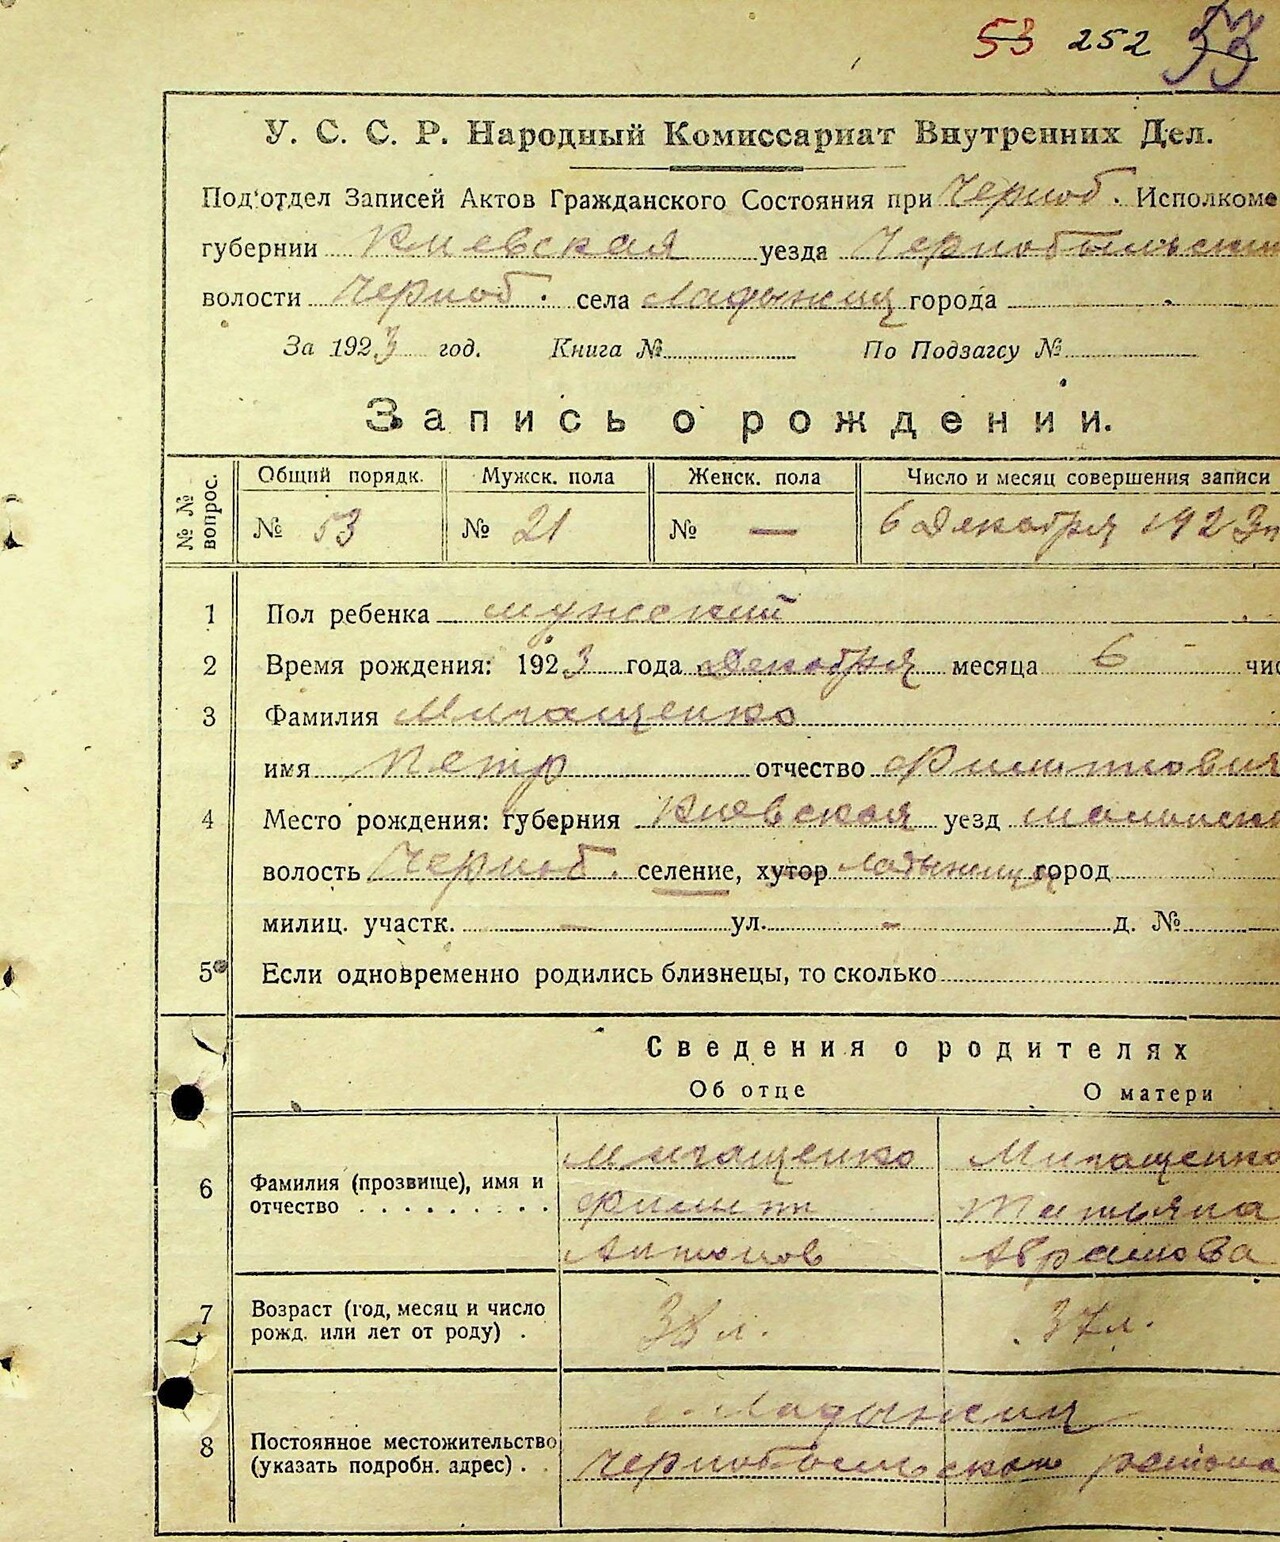 53 252 53
У. С. С. Р. Народный Комиссариат Внутренних Дел.
Под'отдел Записей Актов Гражданского Состояния при Черноб. Исполкоме
губернии Киевская уезда Чернобыльский
волости Черноб. села Ладыжич города
За 1923 год. Книга № По Подзагсу №
Запись о рождении.
№ № вопрос.
Общий порядк. Мужск. пола Женск. пола Число и месяц совершения записи
№ 53 № 21 № — 6 Декабря 1923
1 Пол ребенка мужский
2 Время рождения: 1923 года Декабря месяца 6 чис
3 Фамилия Мигащенко
имя Петр отчество
4 Место рождения: губерния Киевская уезд
волость Черноб. селение, хутор Ладыжичи город
милиц. участк. — ул. - д. №
5 Если одновременно родились близнецы, то сколько
Сведения о родителях
Об отце О матери
6 Фамилия (прозвище), имя и отчество
Мигащенко Мигащенко
Филипп Татьяна
Антонов Абрамова
7 Возраст (год, месяц и число рожд. или лет от роду) . 38 л. 37 л.
8 Постоянное местожительство (указать подробн. адрес) .
с. Ладыжич
Чернобыльского района